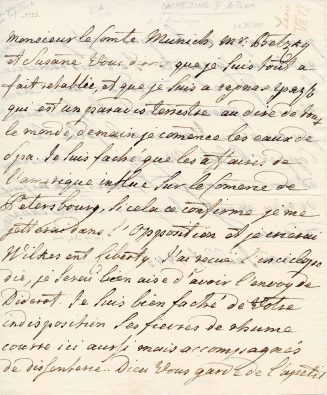 monsieur le Comte Munich, Mr. Betzky
et Susane Vous diront que je suis tout a
fait rétablie, et que je suis a
qui est un paradis terrestre au dire de tout
le monde, demain je comence les eaux de
Spa. Je suis faché que les afaires de
l'amerique influe sur le Comerce de
Petersbourg, si cela ce confirme je me
jetterai dans l'Opposition et je crierai
Wilkes ent liberty. J'ai recue l'enciclope
die, je serai bien aise d'avoir l'envoy de
Diderot. Je suis bien fache de Votre
indisposition les fievres de rhume
courre ici aussi mais accompagnés
de dissenterie. Dieu Vous garde de l'apetis